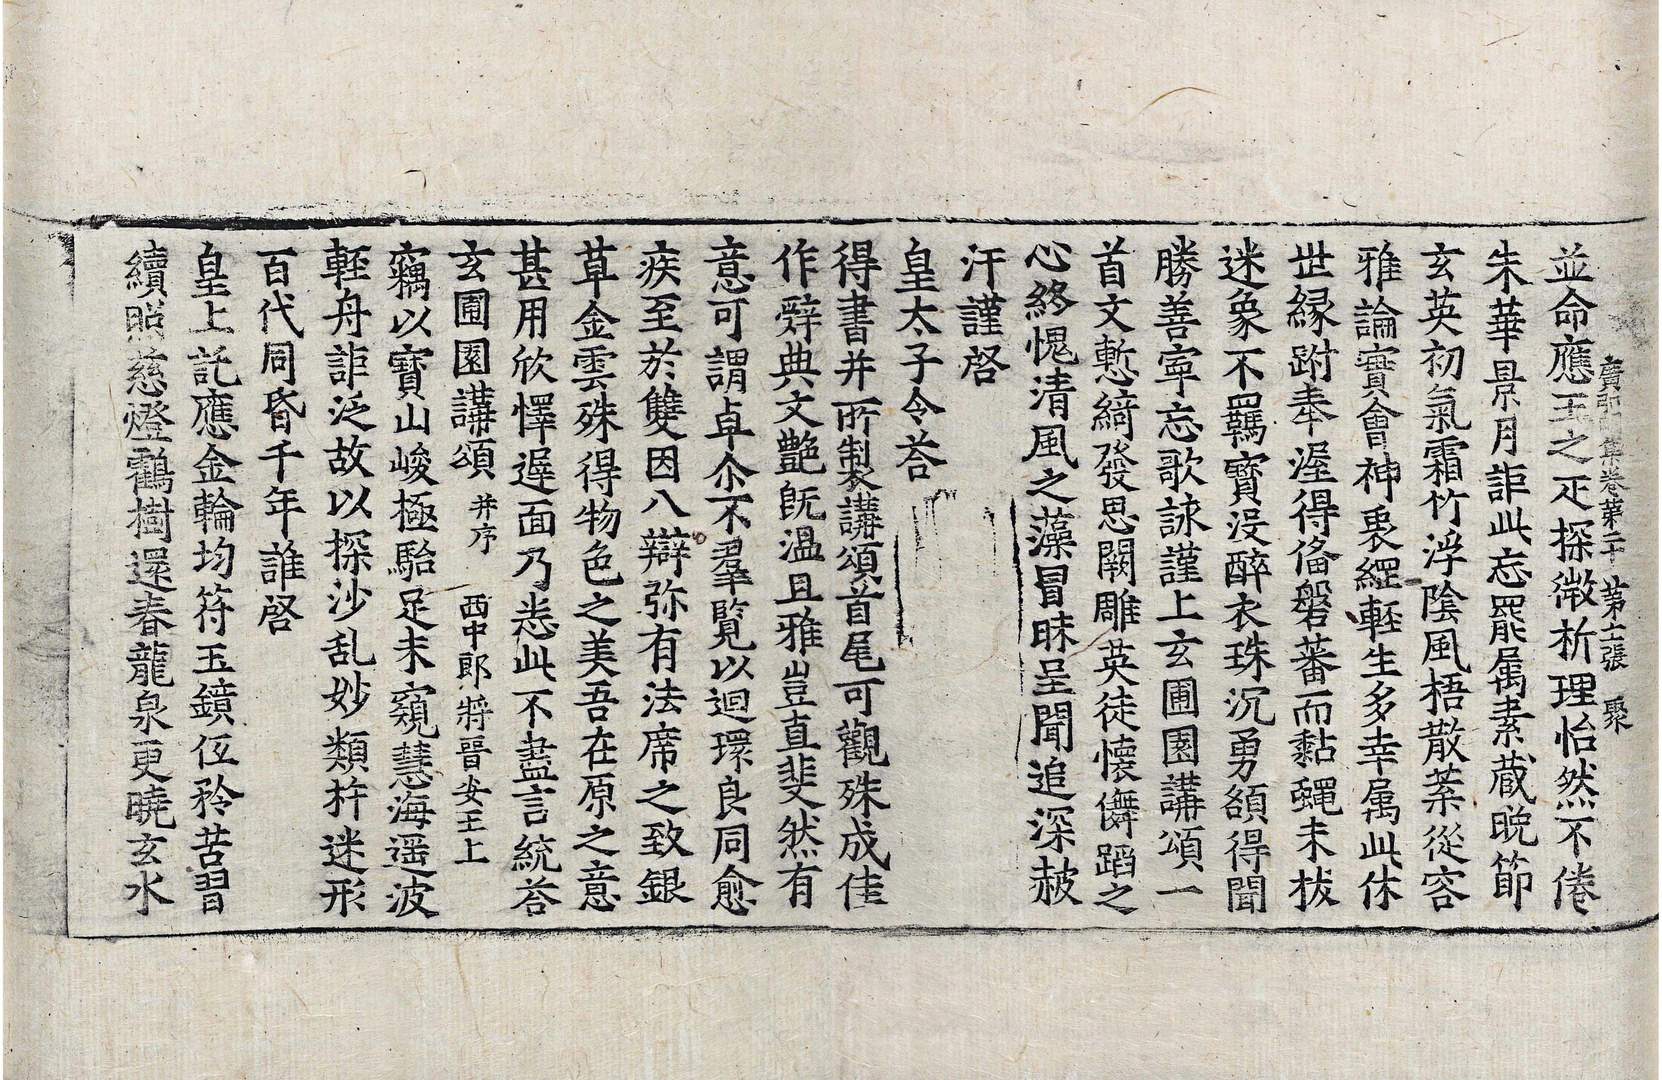 廣弘明集卷第二十 第十二張 聚
並命應王之疋探微析理怡然不倦
朱華景月詎此忘罷屬素藏晚節
玄英初氣霜竹浮陰風梧散葉從容
雅論寶會神衷經輕生多幸屬此休
世緣跗奉渥得俻磐蕃而黏蠅未拔
迷象不羈寶没醉衣珠沉勇額得聞
勝善寧忘歌詠謹上玄圃園講頌一
首文慙綺發思闕雕英徒懷儛蹈之
心終愧清風之藻冒昧呈聞追深赧
汗謹啓
皇太子令荅
得書并所製講頌首尾可觀殊成佳
作辤典文艶既溫且雅豈直斐然有
意可謂卓尒不羣覽以迴環良同愈
疾至於雙因八辯弥有法席之致銀
草金雲殊得物色之美吾在原之意
甚用欣懌遲面乃悉此不盡言統荅
玄圃園講頌 并序 西中郎將晉安王上
竊以寶山峻極駘足未窺慧海遥波
輕舟詎泛故以探沙乱妙類抃迷形
百代同昏千年誰啓
皇上託應金輪均符玉鏡伍矜苦習
續照慈燈鶴樹還春龍泉更曉玄水